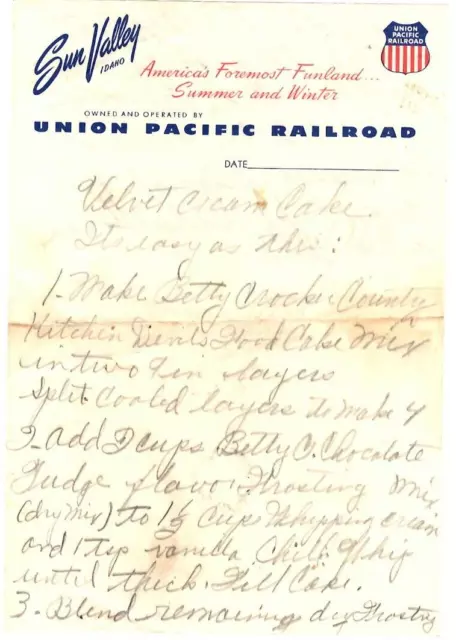 Sun Valley
IDAHO
UNION
PACIFIC
RAILROAD
America's Foremost Funland...
Summer and Winter
OWNED AND OPERATED BY
UNION PACIFIC RAILROAD
DATE
Velvet Cream Cake.
Its easy as this:
1. Make Betty Crocker Country
Kitchen Devils Food Cake Mix
in two 9 in layers
Split cooled layers to make 4
2. add 2 cups Betty C. Chocolate
Fudge flavor Frosting Mix
(dry Mix) to 1½ cups Whipping cream
and 1 tsp vanilla. Chill. Whip
until thick. Fill Cake.
3. Blend remaining dry Frosting